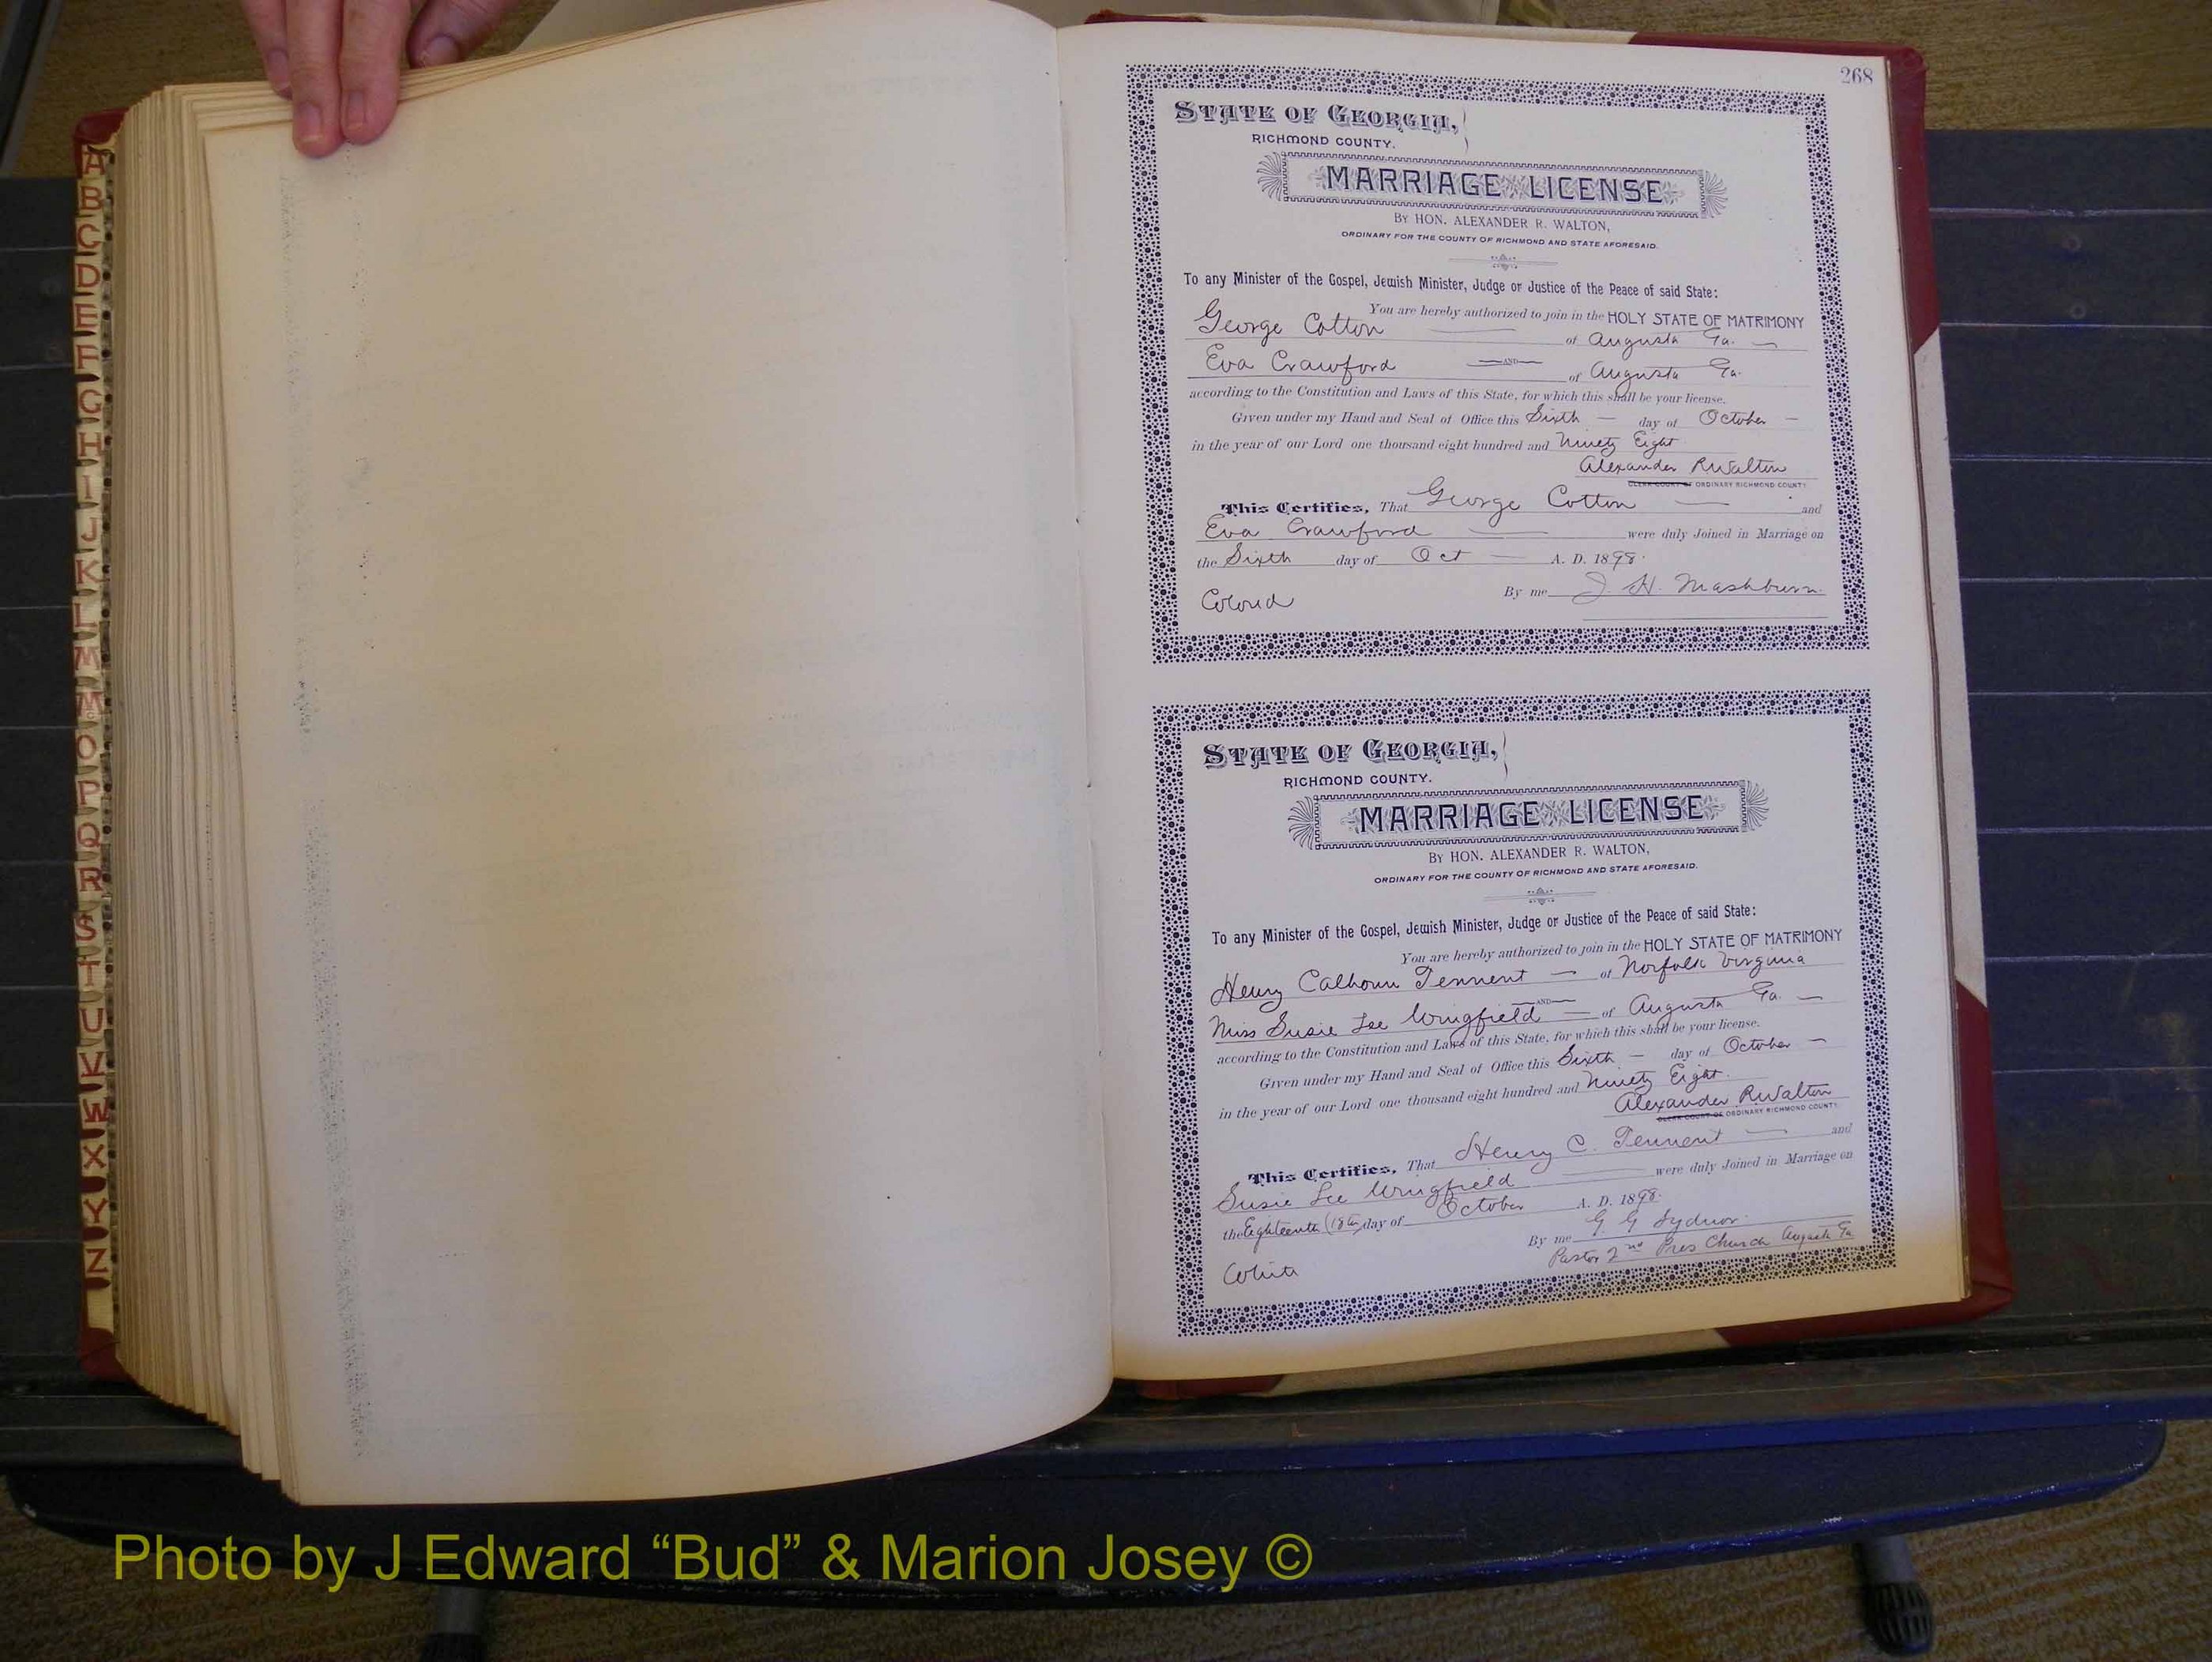 A
B
C
D
E
F
G
H
I
J
K
L
M
Mc
O
P
Q
R
S
T
U
V
W
X
Y
Z
268
STATE OF GEORGIA,
RICHMOND COUNTY.
MARRIAGE LICENSE
BY HON. ALEXANDER R. WALTON,
ORDINARY FOR THE COUNTY OF RICHMOND AND STATE AFORESAID.
To any Minister of the Gospel, Jewish Minister, Judge or Justice of the Peace of said State:
You are hereby authorized to join in the HOLY STATE OF MATRIMONY
George Cotton of Augusta Ga.
AND
Eva Crawford of Augusta Ga.
according to the Constitution and Laws of this State, for which this shall be your license.
Given under my Hand and Seal of Office this Sixth day of October
in the year of our Lord one thousand eight hundred and Ninety Eight
Alexander R Walton
CLERK COURT OF ORDINARY RICHMOND COUNTY
This Certifies, That George Cotton and
Eva Crawford were duly Joined in Marriage on
the Sixth day of Oct A. D. 1898.
By me J. H. Mashburn.
Colored
STATE OF GEORGIA,
RICHMOND COUNTY.
MARRIAGE LICENSE
BY HON. ALEXANDER R. WALTON,
ORDINARY FOR THE COUNTY OF RICHMOND AND STATE AFORESAID.
To any Minister of the Gospel, Jewish Minister, Judge or Justice of the Peace of said State:
You are hereby authorized to join in the HOLY STATE OF MATRIMONY
Henry Calhoun Tennent of Norfolk Virginia
AND
Miss Susie Lee Wingfield of Augusta Ga.
according to the Constitution and Laws of this State, for which this shall be your license.
Given under my Hand and Seal of Office this Sixth day of October
in the year of our Lord one thousand eight hundred and Ninety Eight.
Alexander R Walton
CLERK COURT OF ORDINARY RICHMOND COUNTY.
This Certifies, That Henry C. Tennent and
Susie Lee Wingfield were duly Joined in Marriage on
the Eighteenth (18th) day of October A. D. 1898.
By me G. G. Sydnor
Pastor 2nd Pres Church Augusta Ga
White
Photo by J Edward “Bud” & Marion Josey ©